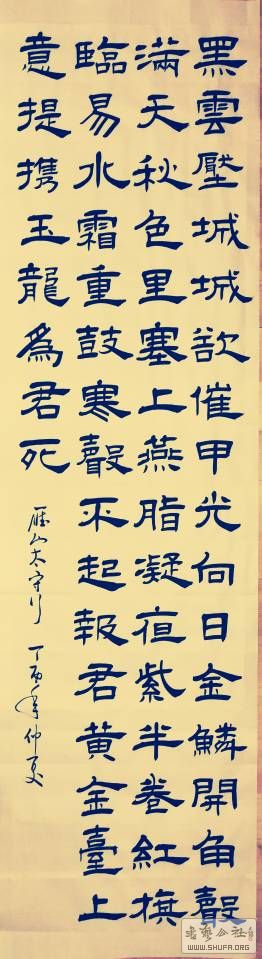 黑雲壓城城欲催甲光向日金鱗開角聲
滿天秋色里塞上燕脂凝夜紫半卷紅旗
臨易水霜重鼓寒聲不起報君黃金臺上
意提携玉龍爲君死
雁门太守行 丁酉年仲夏
書法公社
WWW.SHUFA.ORG